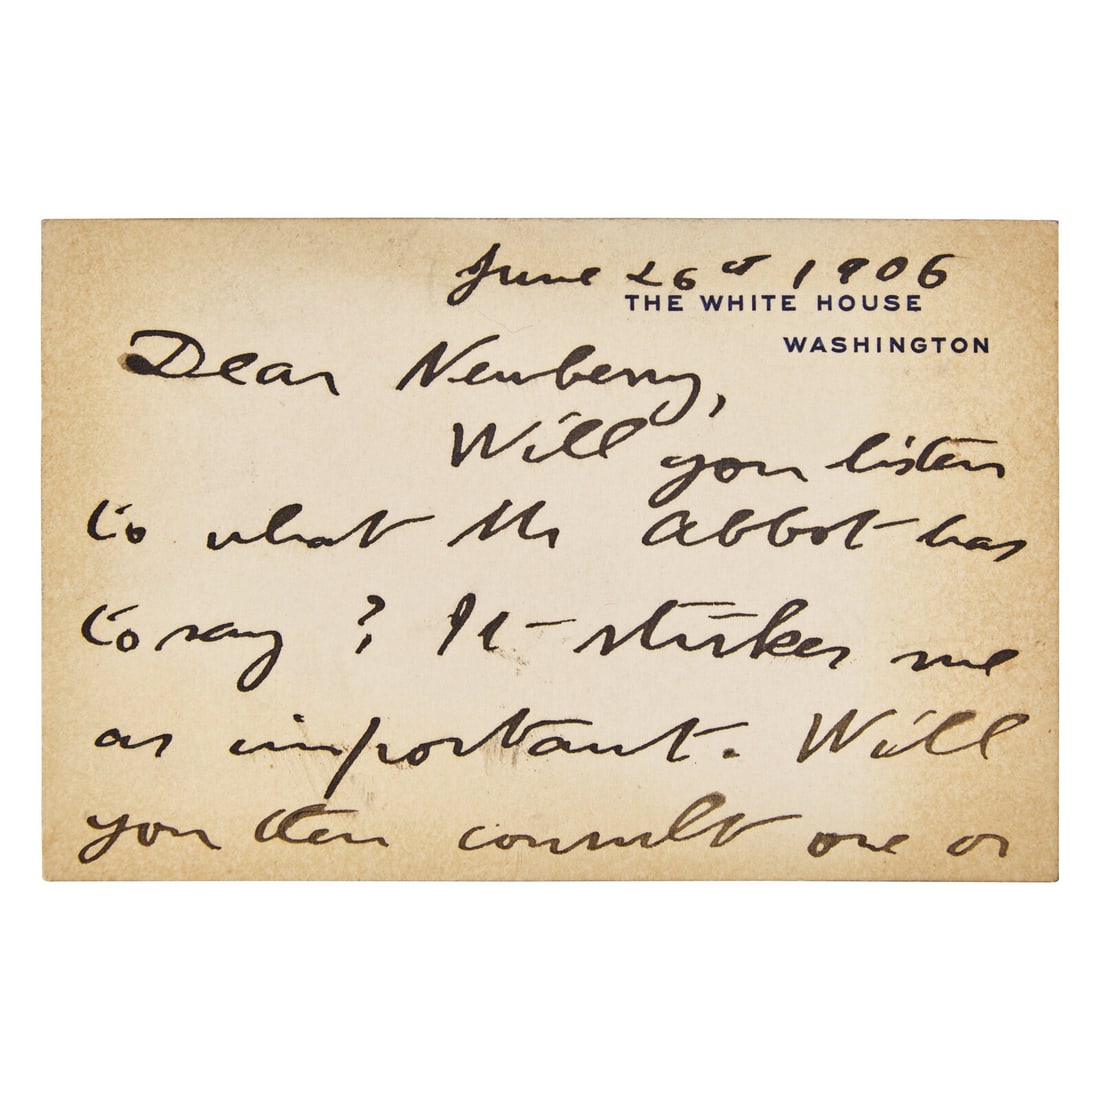 June 26th 1906
THE WHITE HOUSE
WASHINGTON
Dear Newberry,
Will you listen
to what Mr Abbot has
to say? It strikes me
as important. Will
you then consult one or